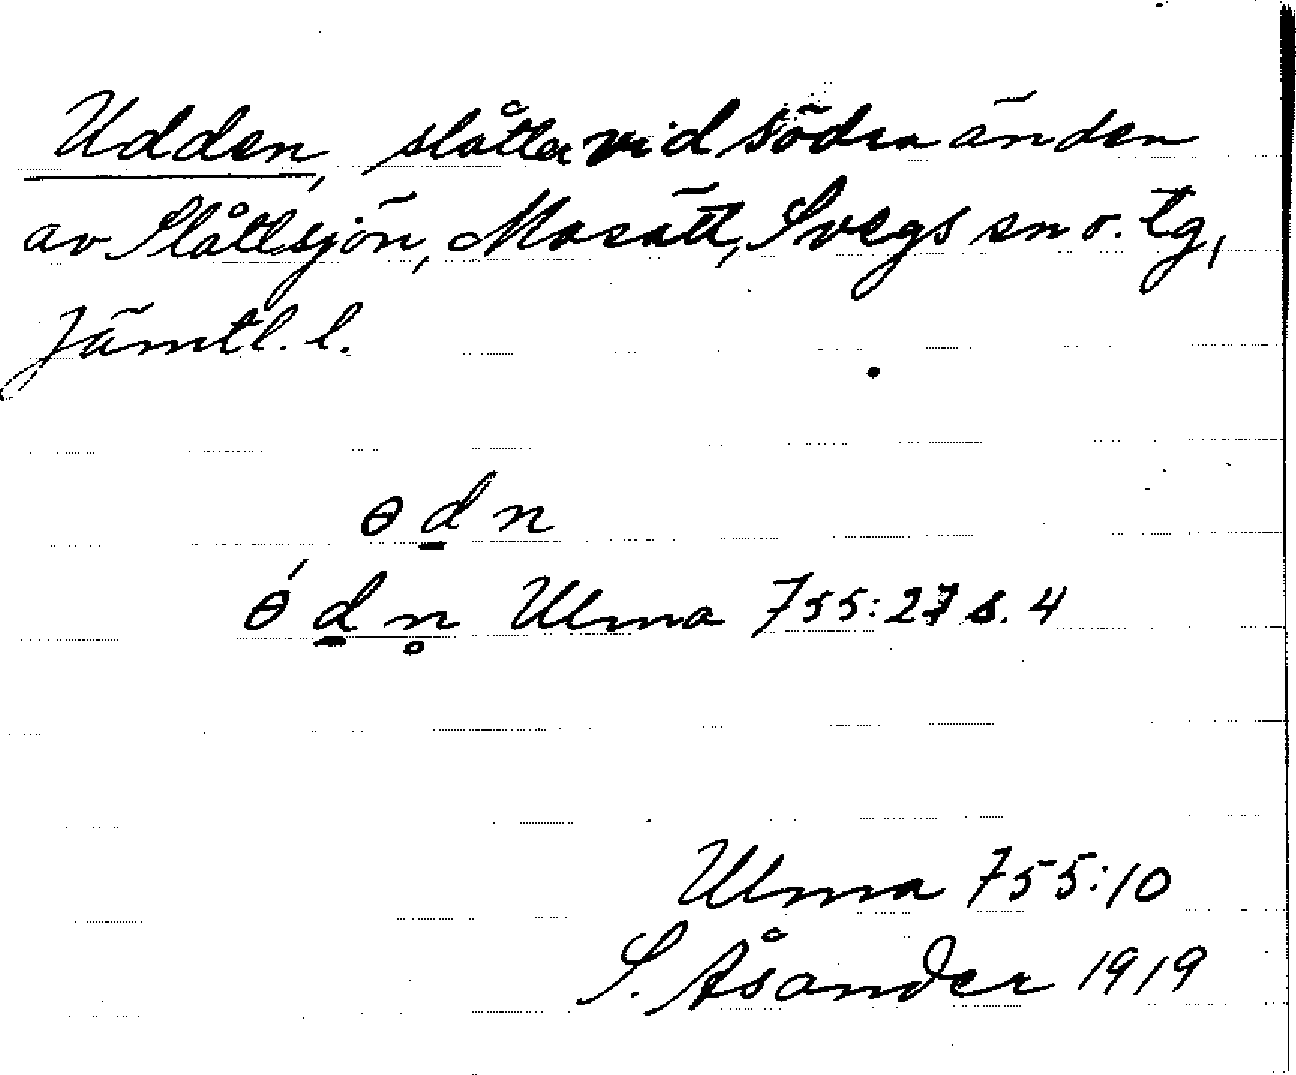 Udden, slåtter vid södra änden
av Slåttsjön, Mosätt, Svegs sn o. tg,
Jämtl. l.
ɵ d̲ n
ɵ́ d̲ n̥ Ulma 755:27 s. 4
Ulma 755:10
S. Åsander 1919